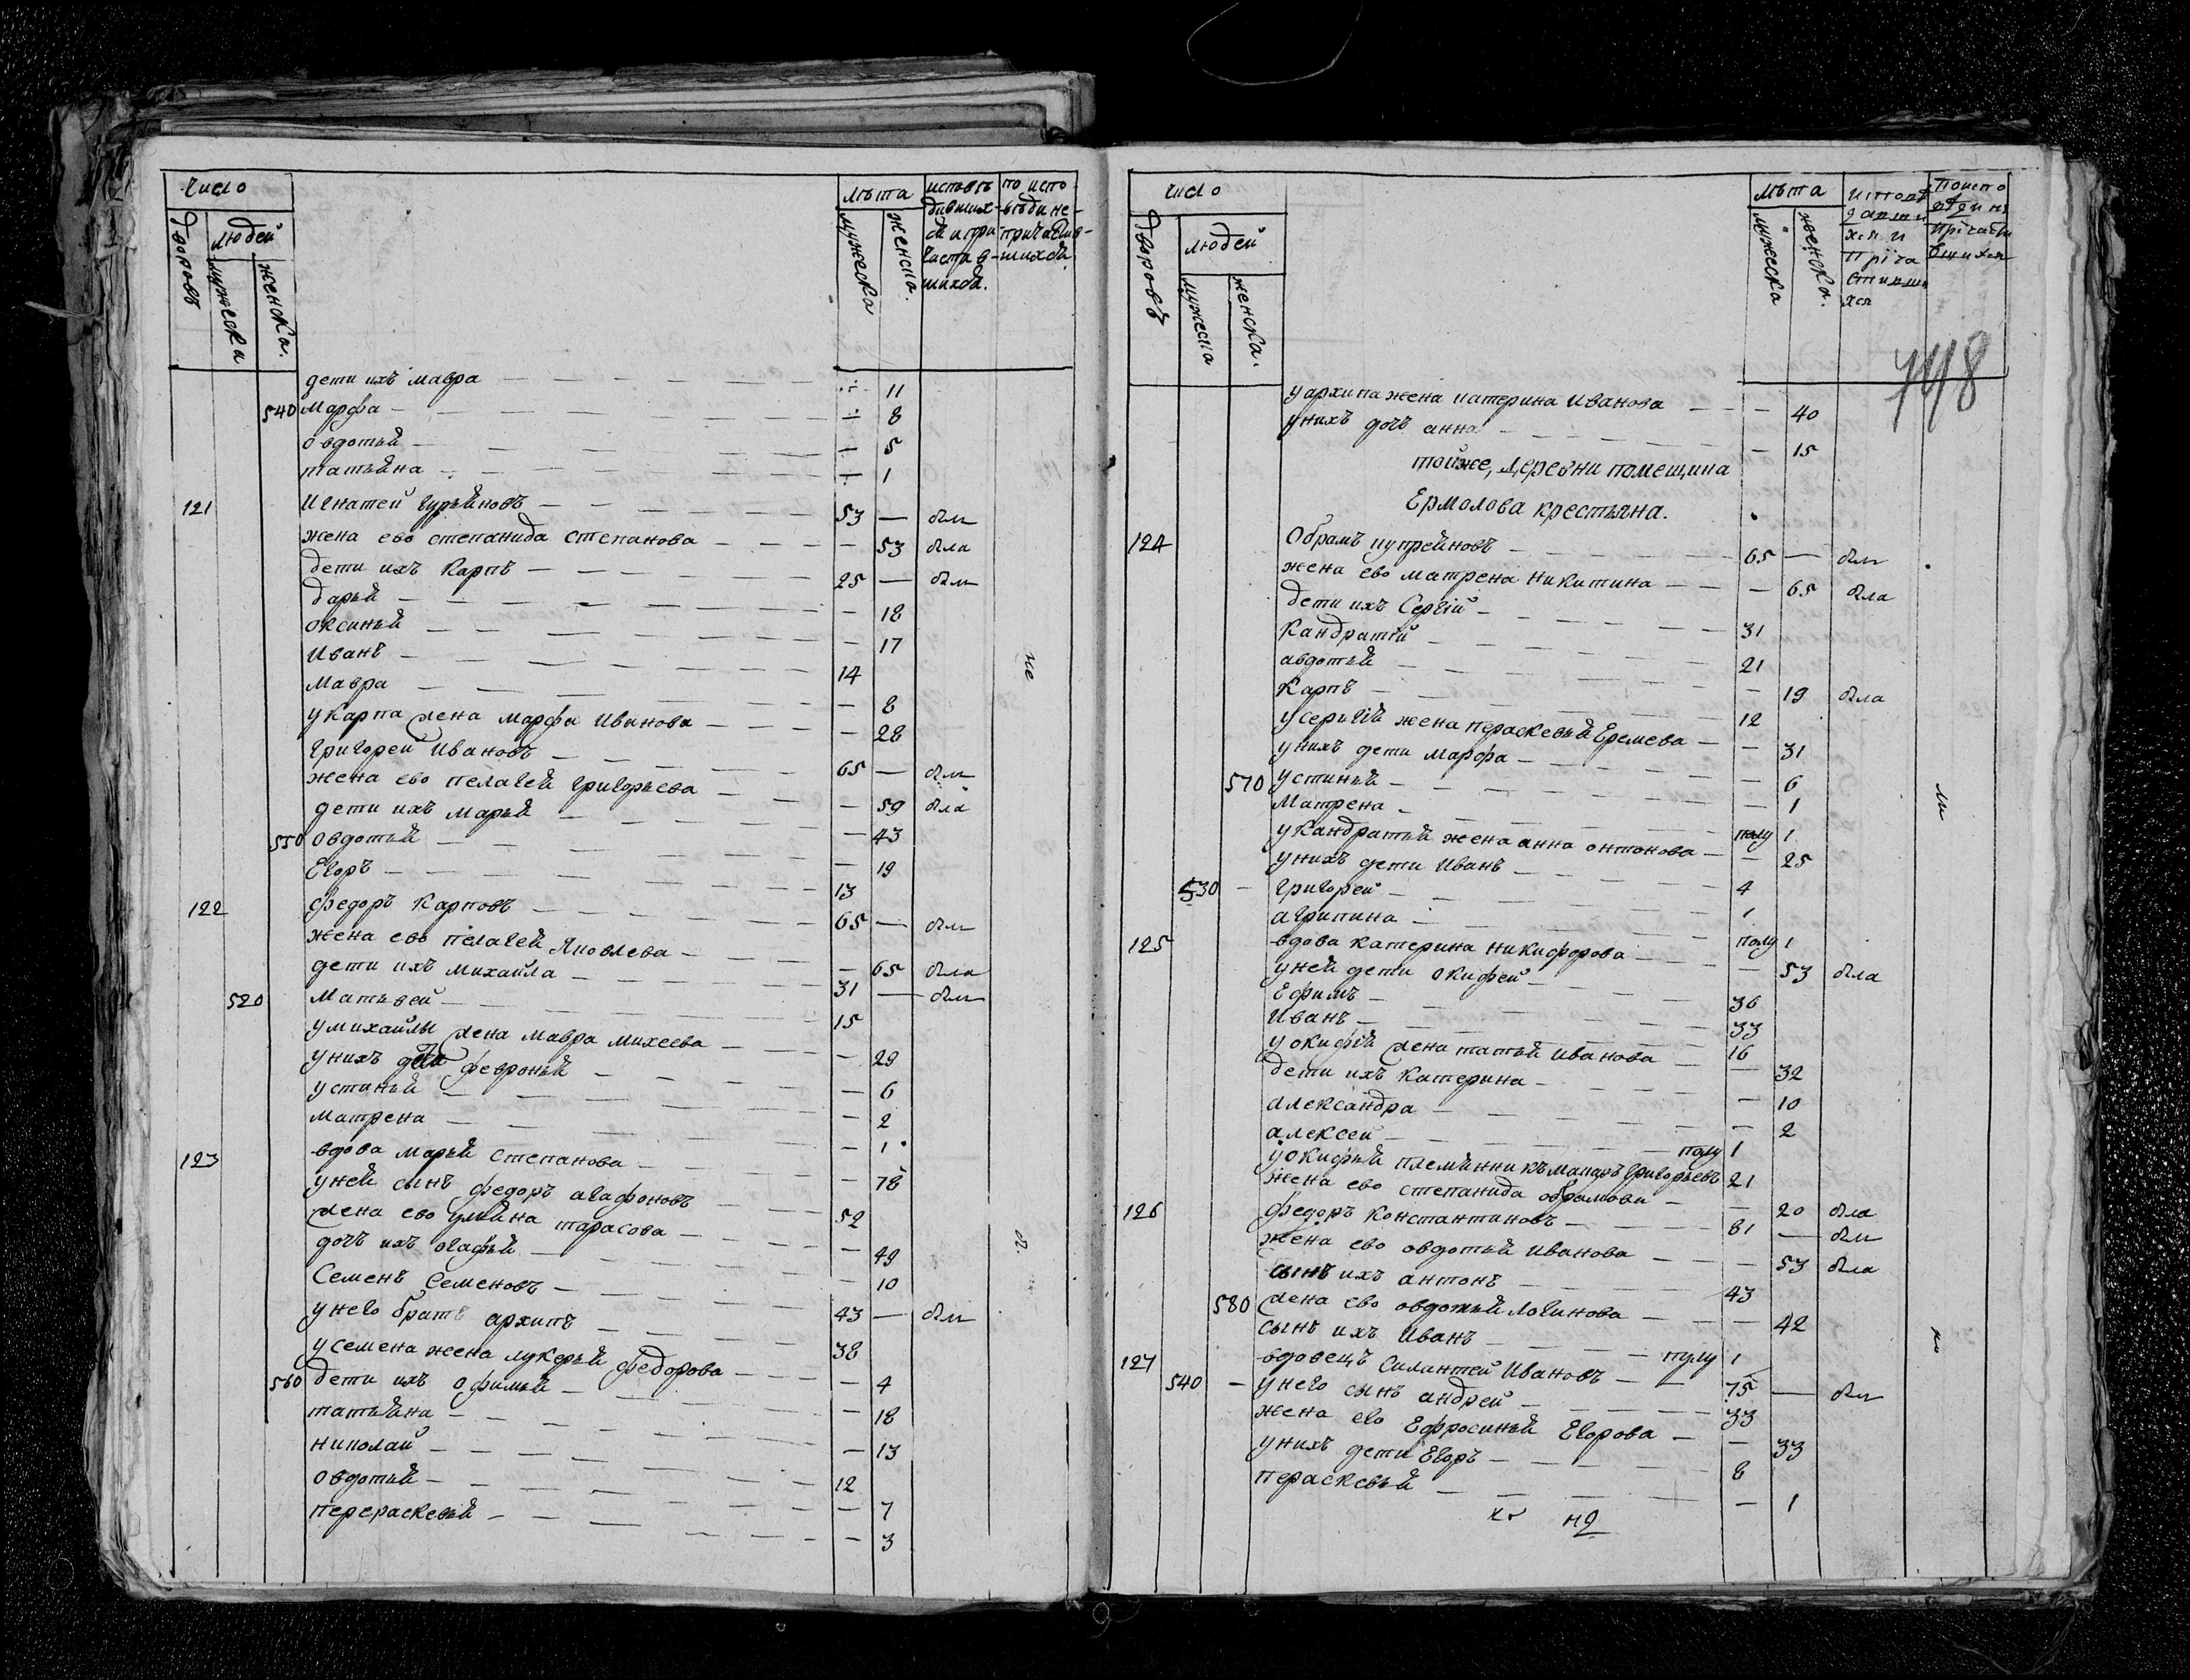 число
дворовъ
людей
мужеска
женска.
лѣта
мужеска
женска.
исповѣ
дывших-
ся и при-
частив-
шихся.
по испо
вѣди не-
причастив-
шихся.
дети ихъ мавра — 11
540 Марфа — 8
овдотья — 5
татьяна — 1
121 Игнатей Гурьяновъ 53 — был
жена ево степанида степанова — 53 была
дети ихъ Карпъ 25 — был
дарья — 18
оксинья — 17
Иванъ 14
мавра — 8
у карпа жена марфа Иванова — 28
Григорей Ивановъ 65 — был
жена ево пелагея Григорьева — 59 была
дети ихъ марья — 43
550 овдотья — 19
Егоръ 13
122 федоръ Карповъ 65 — был
жена ево пелагея Яковлева — 65 была
дети ихъ михайла 31 — был
520 Матьвей 15
у михайлы жена мавра михеева — 29
у нихъ дети февронья — 6
устинья — 2
матрена — 1
123 вдова марья степанова — 78
у ней сынъ федоръ агафоновъ 52
жена ево ульяна тарасова — 49
дочь ихъ агафья — 10
Семенъ Семеновъ 43 — был
у него братъ архипъ 38
у семена жена лукерья федорова — 4
560 дети ихъ офимья — 18
татьяна — 13
николай 12
овдотья — 7
перераскевья — 3
же
число
дворовъ
людей
мужеска
женска.
лѣта
мужеска
женска.
748
у архипа жена катерина Иванова — 40
у нихъ дочь анна — 15
тойже, деревни помещика
Ермолова крестьяна.
124 Обрамъ купреяновъ 65 — был
жена ево матрена никитина — 65 была
дети ихъ Сергій 31
Кандратій 21
авдотья — 19 была
Карпъ 12
у сергія жена пераскевья Еремева — 31
у нихъ дети марфа — 6
570 устинья — 1
Матрена полу 1
у кандратья жена анна онтонова — 25
у нихъ дети Иванъ 4
530 — григорей 1
агрипина полу 1
125 вдова катерина никифорова — 53 была
у ней дети окифей 36
Ефимъ 33
Иванъ 16
у окифія жена татья Иванова — 32
дети ихъ катерина — 10
александра — 2
алексей полу 1
у окифья племянникъ макаръ григорьевъ 21
жена ево степанида обрамова — 20 была
126 федоръ константиновъ 81 — был
жена ево овдотья Иванова — 53 была
сынъ ихъ антонъ 43
580 жена ево овдотья логинова — 42
сынъ ихъ Иванъ полу 1
127 вдовецъ Силантей Ивановъ 75 — был
540 — у него сынъ андрей 33
жена ево Ефросинья Егорова — 33
у нихъ дети Егоръ 8
пераскевья — 1
ли
но